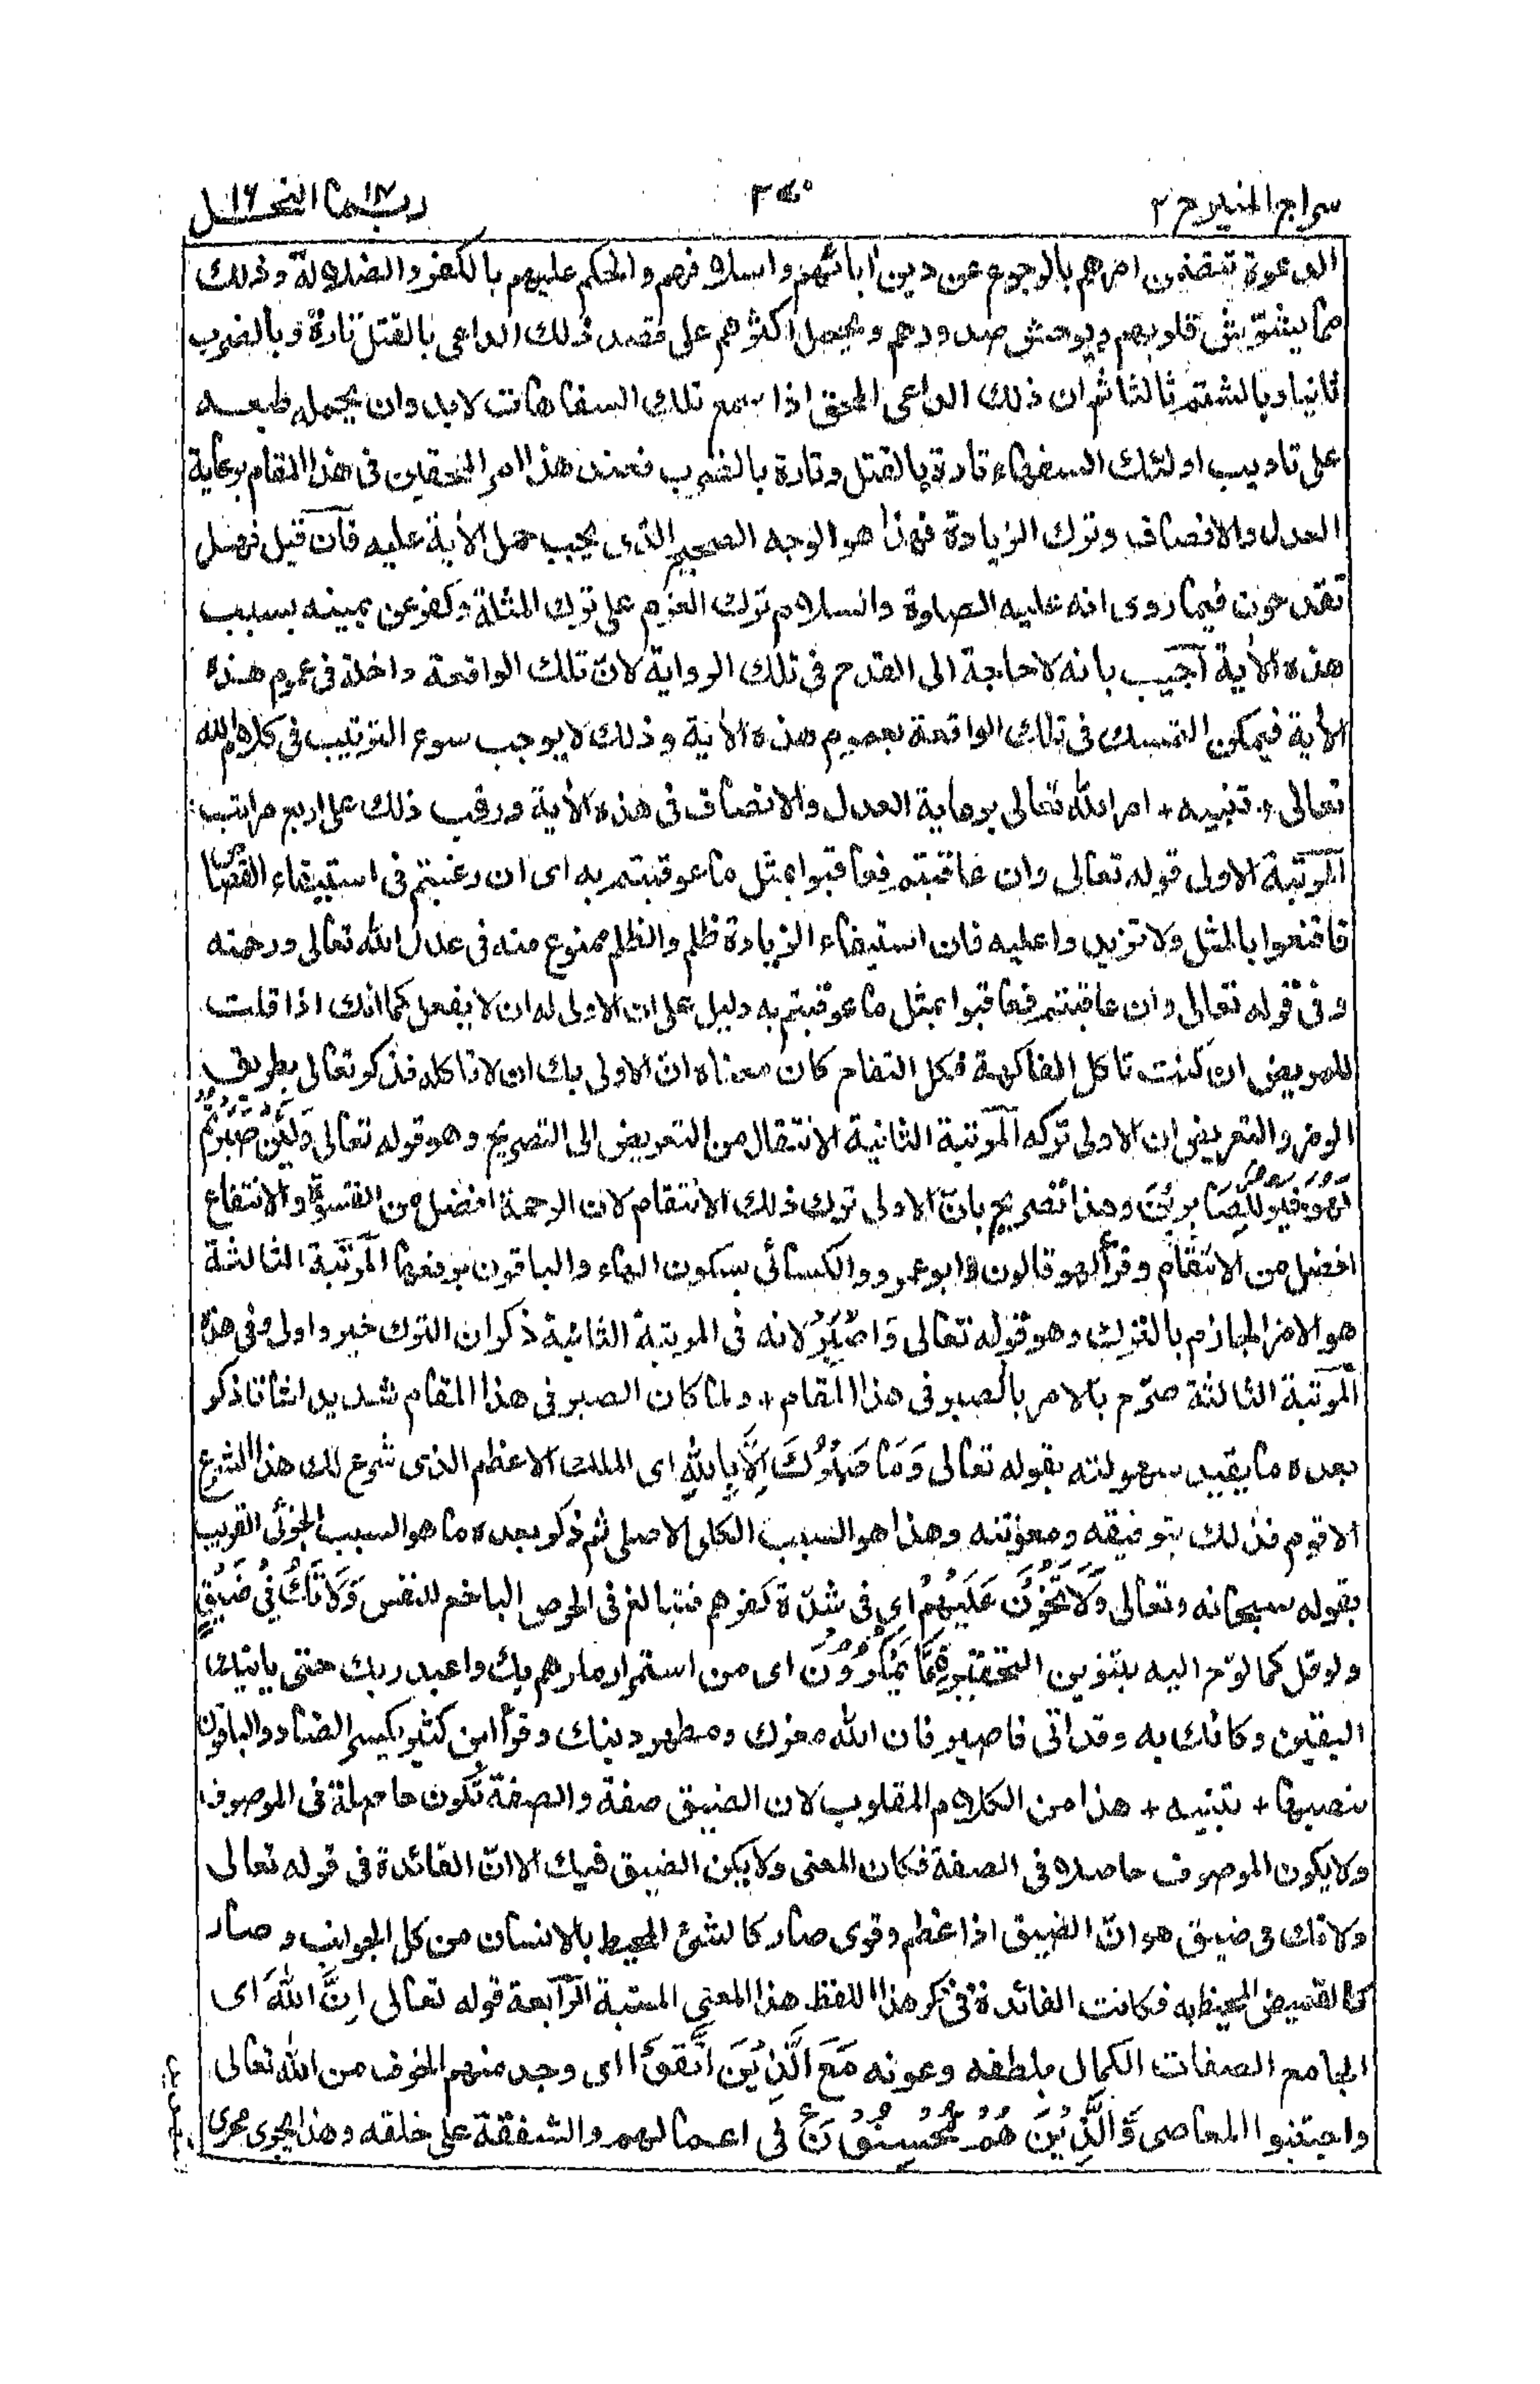 سراج المنير ج ٢
ربما ١٤ النحل ١٦
الدعوة تتضمن امرهم بالرجوع عن دين ابائهم واسلافهم والحكم عليهم بالكفر والضلالة وذلك
مما يشوّش قلوبهم ويوحش صدورهم ويحمل اكثرهم على قصد ذلك الداعى بالقتل تارة وبالضرب
ثانيا وبالشتم ثالثا ثم ان ذلك الداعى المحق اذا سمع تلك السفاهات لابد وان يحمله طبعه
على تاديب اولئك السفهاء تارة بالقتل وتارة بالضرب فعند هذا امر المحقين فى هذا المقام برعاية
العدل والانصاف وترك الزيادة فهذا هو الوجه الصحيح الذى يجب حمل الأية عليه فان قيل فهل
تقدحون فيما روى انه عليه الصلوة والسلام ترك العزم على ترك المثلة وكفر عن يمينه بسبب
هذه الأية اجيب بانه لا حاجة الى القدح فى تلك الرواية لانّ تلك الواقعة داخلة فى عموم هذه
الأية فيمكن التمسك فى تلك الواقعة بعموم هذه الأية وذلك لا يوجب سوء الترتيب فى كلام الله
تعالى + تنبيه + امر الله تعالى برعاية العدل والانصاف فى هذه الأية ورتب ذلك على اربع مراتب
المرتبة الاولى قوله تعالى وان عاقبتم فعاقبوا بمثل ما عوقبتم به اى ان رغبتم فى استيفاء القصاص
فاقنعوا بالمثل ولا تزيدوا عليه فان استيفاء الزيادة ظلم والظلم ممنوع منه فى عدل الله تعالى ورحمته
وفى قوله تعالى وان عاقبتم فعاقبوا بمثل ما عوقبتم به دليل على ان الاولى له ان لا يفعل كما انك اذا قلت
للمريض ان كنت تاكل الفاكهة فكل التفاح كان معناه انّ الاولى بك ان لا تاكله فذكر تعالى بطريق
الرمز والتعريض ان الاولى تركه المرتبة الثانية الانتقال من التعريض الى التصريح وهو قوله تعالى وَلَئِنْ صَبَرْتُمْ
لَهُوَ خَيْرٌ لِلصَّابِرِيْنَ وهذا تصريح بانّ الاولى ترك ذلك الانتقام لان الرحمة افضل من القسوة والانتفاع
افضل من الانتقام وقرأ لهو قالون وابو عمرو والكسائى بسكون الهاء والباقون برفعها المرتبة الثالثة
هو الامر الجازم بالترك وهو قوله تعالى وَاصْبِرْ لانه فى المرتبة الثانية ذكر ان الترك خير واولى وفى هذه
المرتبة الثالثة صرّح بالامر بالصبر فى هذا المقام + ولما كان الصبر فى هذا المقام شديدا شاقا ذكر
بعده ما يفيد سهولته بقوله تعالى وَمَا صَبْرُكَ اِلَّا بِاللهِ اى الملك الاعظم الذى شرع لك هذا الشرع
الاقوم فذلك بتوفيقه ومعونته وهذا هو السبب الكلى الاصلى ثم ذكر بعده ما هو السبب الجزئى القريب
بقوله سبحانه وتعالى وَلَا تَحْزَنْ عَلَيْهِمْ اى فى شدّة كفرهم فتبالغ فى الحرص الباخع للنفس وَلَا تَكُ فِيْ ضَيْقٍ
ولو قل كما لوّح اليه بتنوين التحقير مِمَّا يَمْكُرُوْنَ اى من استمرار مكرهم بك واعبد ربك حتى ياتيك
اليقين وكانك به وقد اتى فاصبر فان الله معزك ومظهر دينك وقرأ ابن كثير بكسر الضاد والباقون
بنصبها + تنبيه + هذا من الكلام المقلوب لان الضيق صفة والصفة تكون حاصلة فى الموصوف
ولا يكون الموصوف حاصلا فى الصفة فكان المعنى ولا يكن الضيق فيك الا انّ الفائدة فى قوله تعالى
ولا تك فى ضيق هو انّ الضيق اذا عظم وقوى صار كالشئ المحيط بالانسان من كل الجوانب وصار
كالقميص المحيط به فكانت الفائدة فى ذكر هذا اللفظ هذا المعنى المرتبة الرابعة قوله تعالى اِنَّ اللهَ اى
الجامع الصفات الكمال بلطفه وعونه مَعَ الَّذِيْنَ اتَّقَوْا اى وجد منهم الخوف من الله تعالى
واجتنبوا المعاصى وَّالَّذِيْنَ هُمْ مُّحْسِنُوْنَ ع فى اعمالهم والشفقة على خلقه وهذا يجرى مجرى